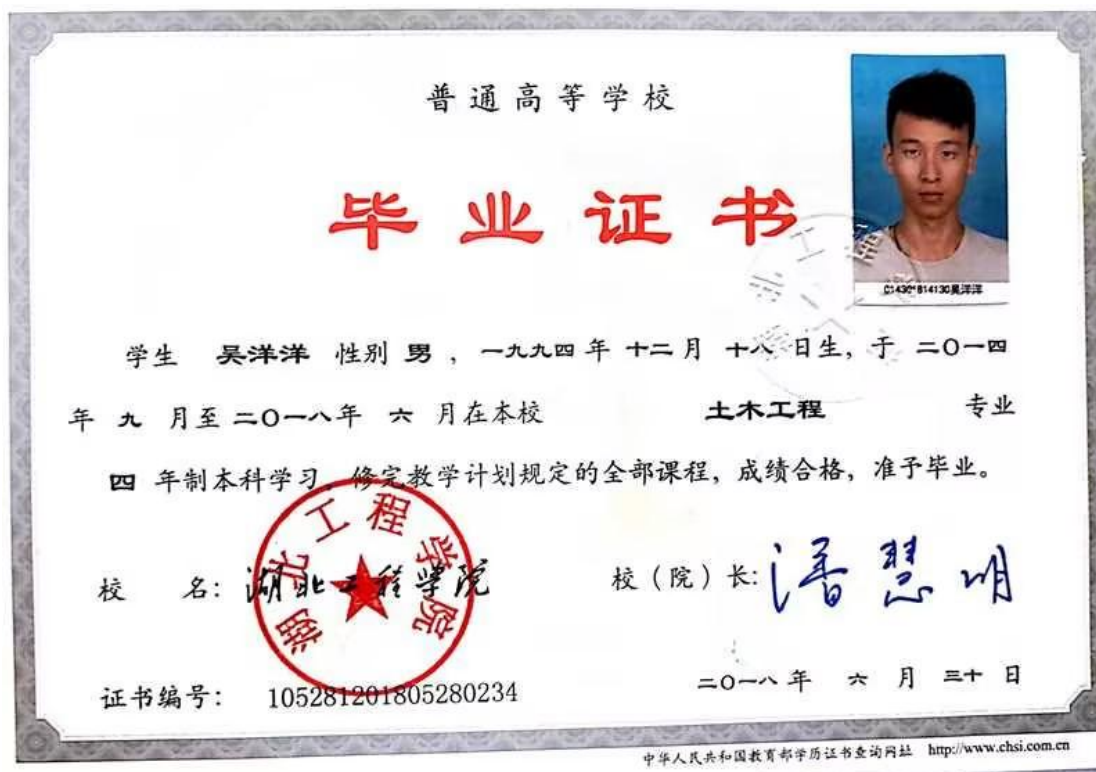 普通高等学校
毕业证书
C1430*814130吴洋洋
学生 吴洋洋 性别 男 ，一九九四 年 十二 月 十八 日生，于 二O一四
年 九 月至 二O一八年 六 月在本校 土木工程 专业
四 年制本科学习，修完教学计划规定的全部课程，成绩合格，准予毕业。
湖北工程学院
校 名：湖北工程学院 校（院）长：潘慧明
证书编号： 105281201805280234 二O一八 年 六 月 三十 日
中华人民共和国教育部学历证书查询网址 http://www.chsi.com.cn